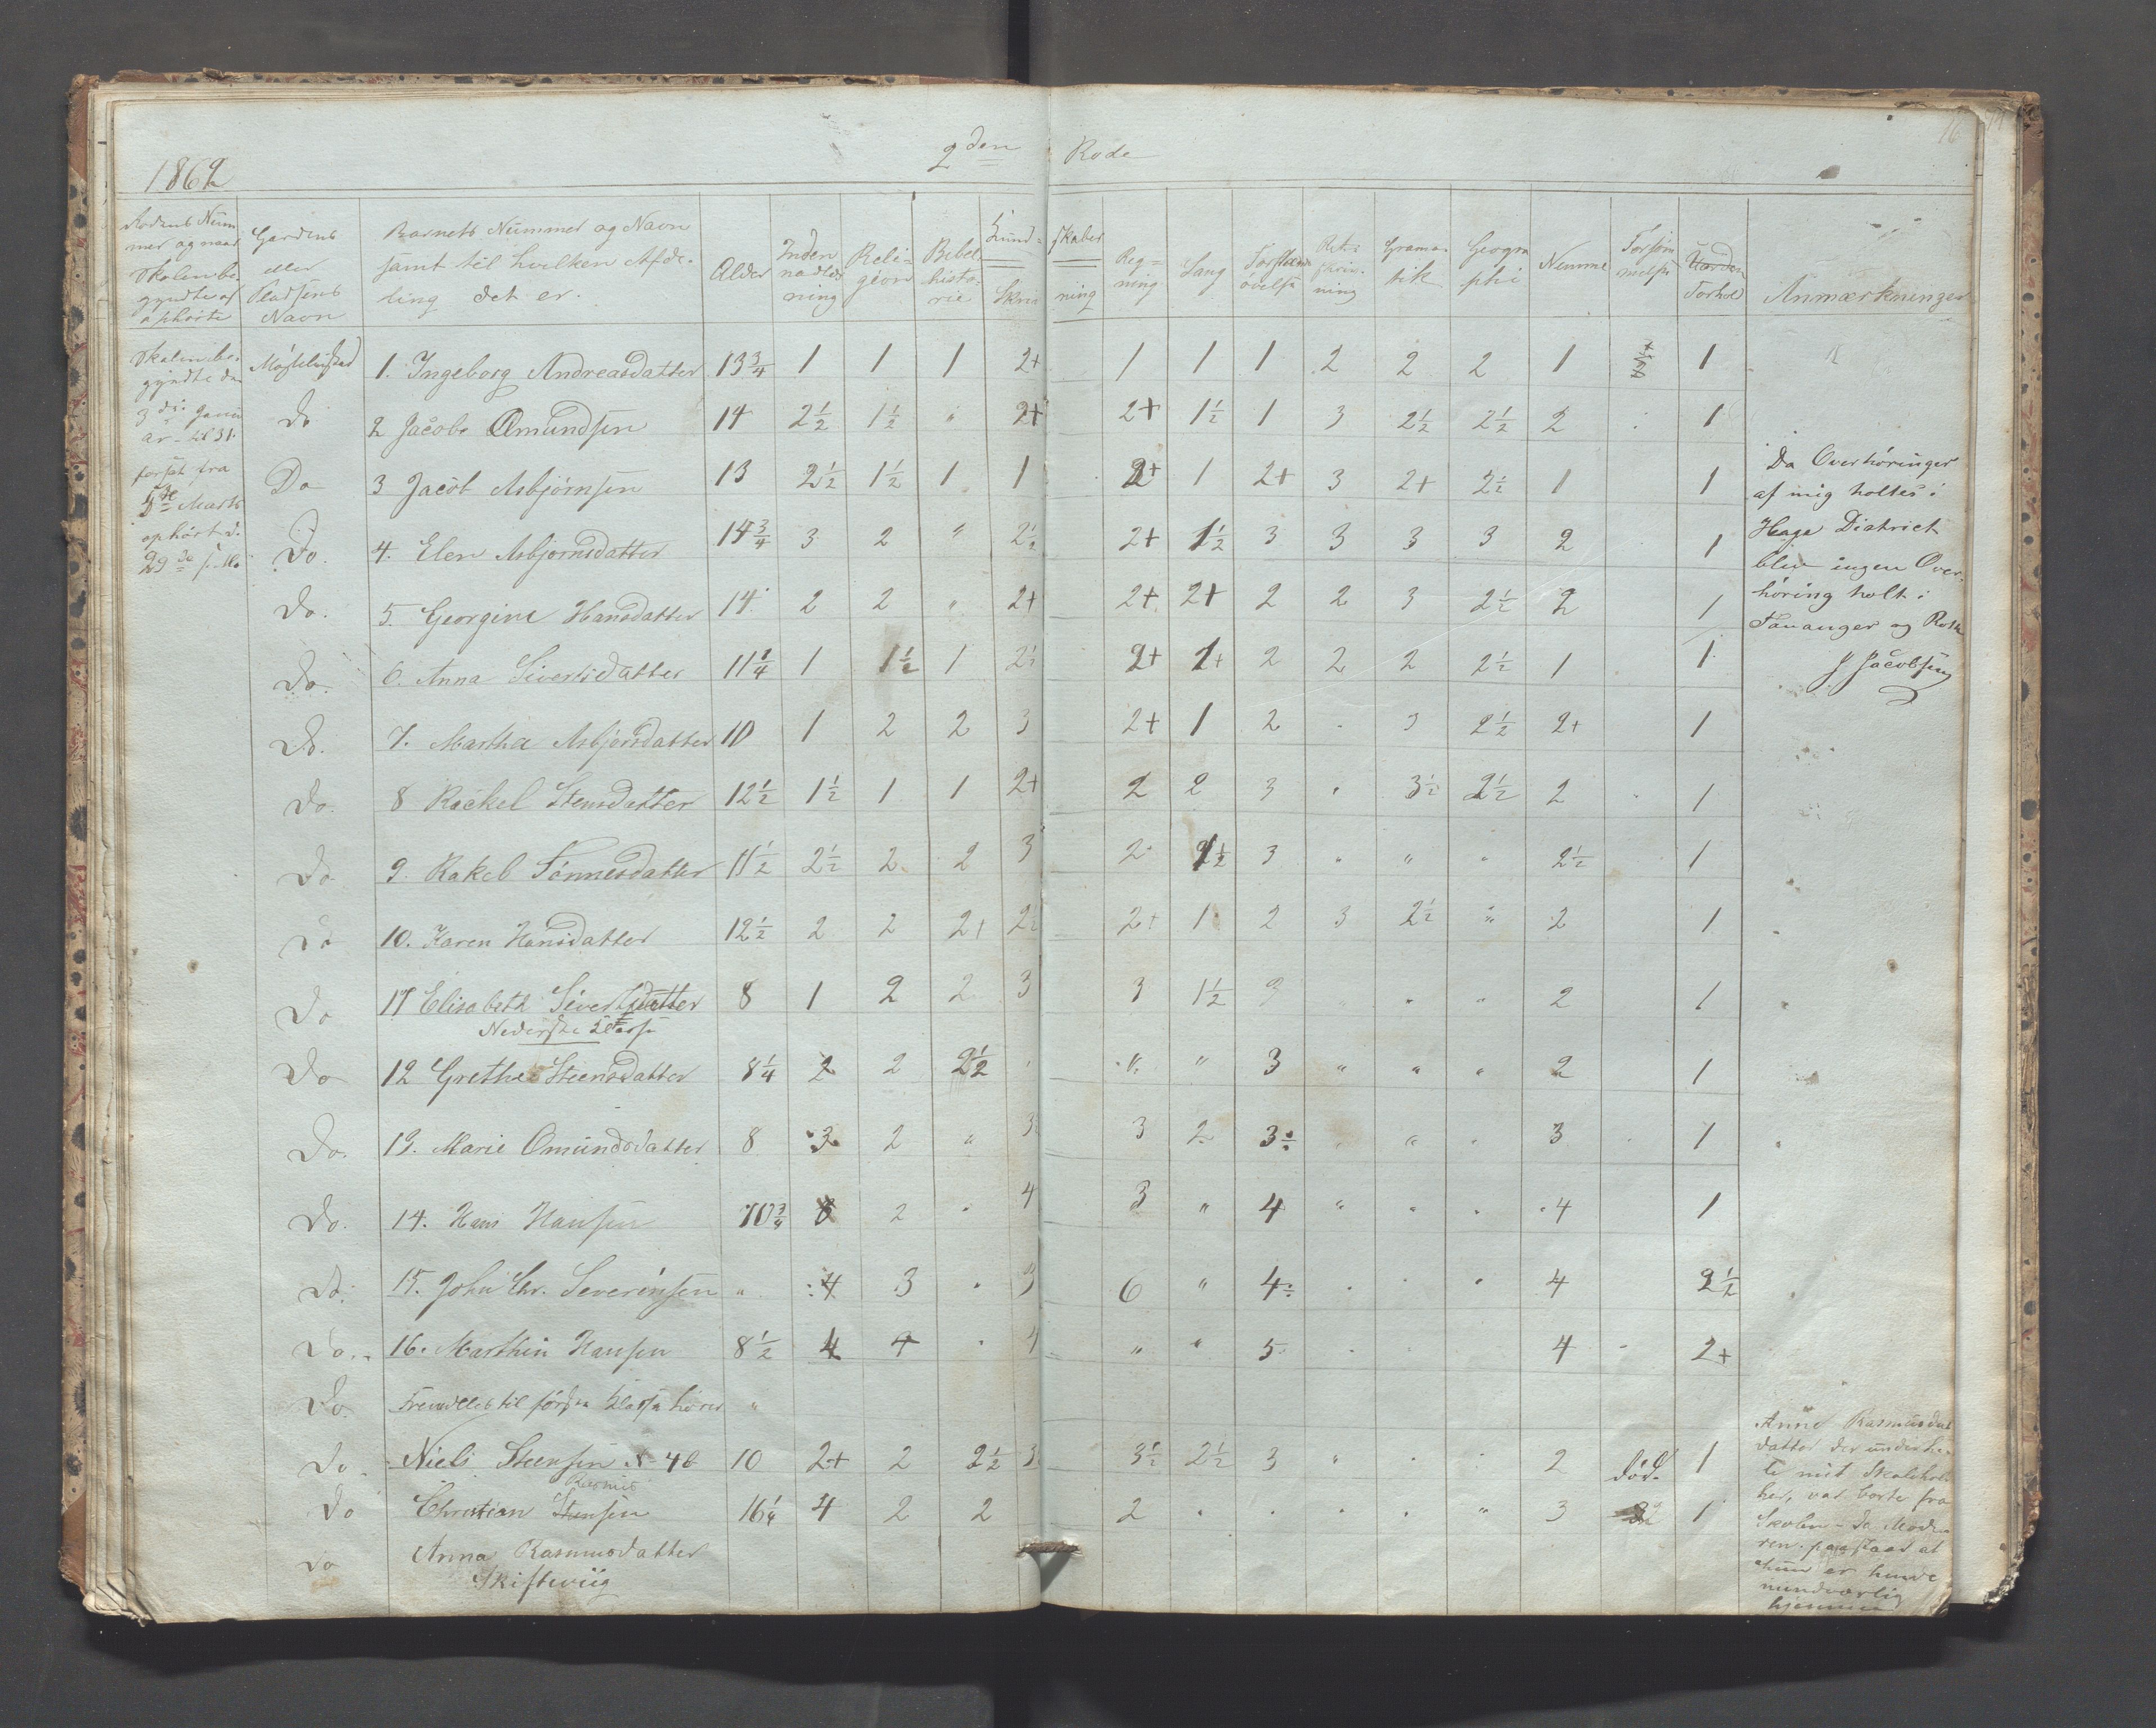 1862
2den Rode
Rodens Num-
mer og naar
Skolen be-
gyndte og
ophørte
Gardens
eller
Pladsens
Navn
Barnets Nummer og Navn
samt til hvilken Afde-
ling det er.
Alder
Inden
nadlæs
ning
Reli-
gion
Bibel
histo-
rie
Kund-
skaber
Skriv
ning
Reg-
ning
Sang
Forstands
øvelse
Ret-
skriv-
ning
Grama-
tik
Geogra
phi
Nemme
Forsøm
melse
Forhold
Anmærkninger
Skolen be-
gyndte den
3die Janu
ar til 31.
forsat fra
Marts
ophørt d.
29de
1. Ingeborg Andreasdatter 13 3/4 1 1 1 2+ 1 1 1 2 2 2 1 1
Do 2 Jacob Omundsen 14 2 1/2 1 1/2 " 2+ 2+ 1 1/2 1 3 2 1/2 2 1/2 2 1
Do 3 Jacob Asbjørnsen 13 2 1/2 1 1/2 1 1 2+ 1 2+ 3 2+ 2 1/2 1 1
Do. 4. Elen Asbjornsdatter 14 3/4 3 2 " 2 1/2 2+ 1 1/2 3 3 3 3 2 1
Do. 5. Georgine Hansdatter 14 2 2 " 2+ 2+ 2+ 2 2 3 2 1/2 2 1
Do. 6. Anna Sivertsdatter 11 1/4 1 1 1/2 1 2 1/2 2+ 1+ 2 2 2 2 1/2 1 1
Do. 7. Martha Asbjørsdatter 10 1 2 2 3 2+ 1 2 3 2 1/2 2+ 1
Do. 8 Rackel Stensdatter 12 1/2 1 1/2 1 1 2+ 2 2 3 " 3 1/2 2 1/2 2 1
Do 9 Rakel Tønnesdatter 11 1/2 2 1/2 2 2 3 2 2 1/2 3 " " " 2 1/2 1
Do 10. Karen Hansdatter 12 1/2 2 2 2+ 2 1/2 2+ 1 2 3 2 1/2 " 2 1
Do 11 Elisabeth Sivertsdatter 8 1 2 2 3 3 1 1/2 3 " " 2 1
Nederste Klasse
Do 12 Grethe Steensdatter 8 1/4 2 2 2 1/2 " " 3 " " " 2 1
Do. 13. Marie Omundsdatter 8 3 2 " 3 3 2 3÷ " " 3 1
Do. 14. Hans Hansen 10 3/4 2 " 4 3 " 4 " " " 4 1
Do. 15. John Chr. Severinsen " 4 3 " 3 6 " 4÷ " " " 4 2 1/2
Do. 16. Marthin Hansen 8 1/2 4 4 " 4 " " 5 4 2+
Do. Fremdeles til første Klasse hører "
Do. Niels Steensen N 4b 10 2+ 2 2 1/2 3 3 1/2 2 1/2 3 " 2 død. 1
Rasmus
Do Christian Stensen 16 1/4 4 2 2 2 " 3 1
Do Anna Rasmusdatter
Skifteviig
Da Overhøringer
af mig holtes i
Haga District
blev ingen Over-
høring holt i
Tananger og Rott
J Jacobsen
Anne Rasmusdat
datter der
var borte fra
Skolen da Mode-
ren paastaad at
hun er hende
nundværlig
hjemme